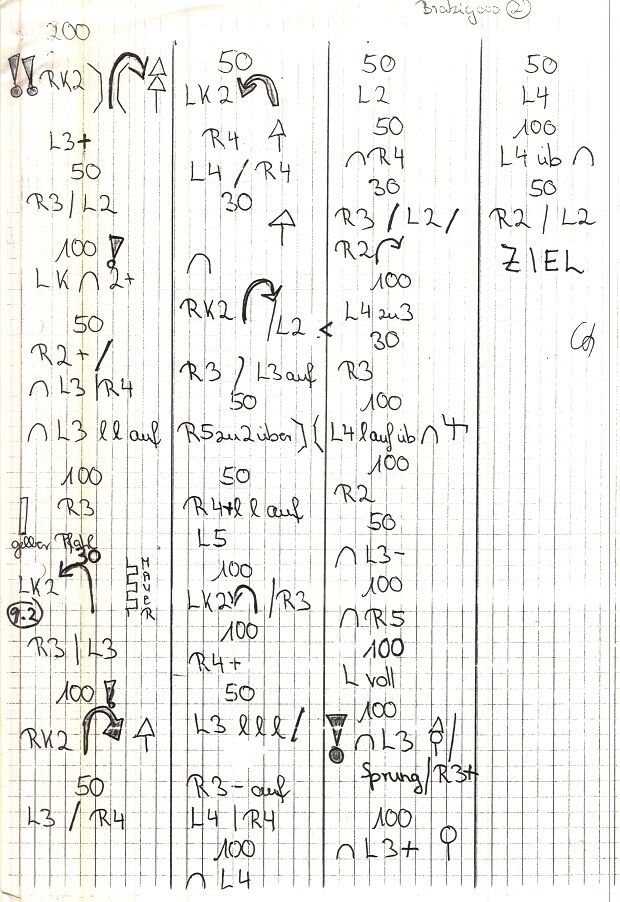 200
!! RK2
L3+
50
R3 / L2
100 !
LK ∩ 2+
50
R2+ /
∩ L3 / R4
∩ L3 ll auf
100
R3
gelber Pfahl
30
LK2
MAUER
9.2
R3 / L3
100 !
RK2
50
L3 / R4
50
LK2
R4
L4 / R4
30
∩
RK2 / L2 <
R3 / L3 auf
50
R5 zu 2 über
50
R4+ l l auf
L5
100
LK2 ∩ / R3
100
R4+
50
L3 lll /
R3- auf
L4 / R4
100
∩ L4
50
L2
50
∩ R4
30
R3 / L2 /
R2
100
L4 zu 3
30
R3
100
L4 l auf üb ∩
100
R2
50
∩ L3-
100
∩ R5
100
L voll
100
! ∩ L3 /
Sprung / R3+
100
∩ L3+
50
L4
100
L4 üb ∩
50
R2 / L2
ZIEL